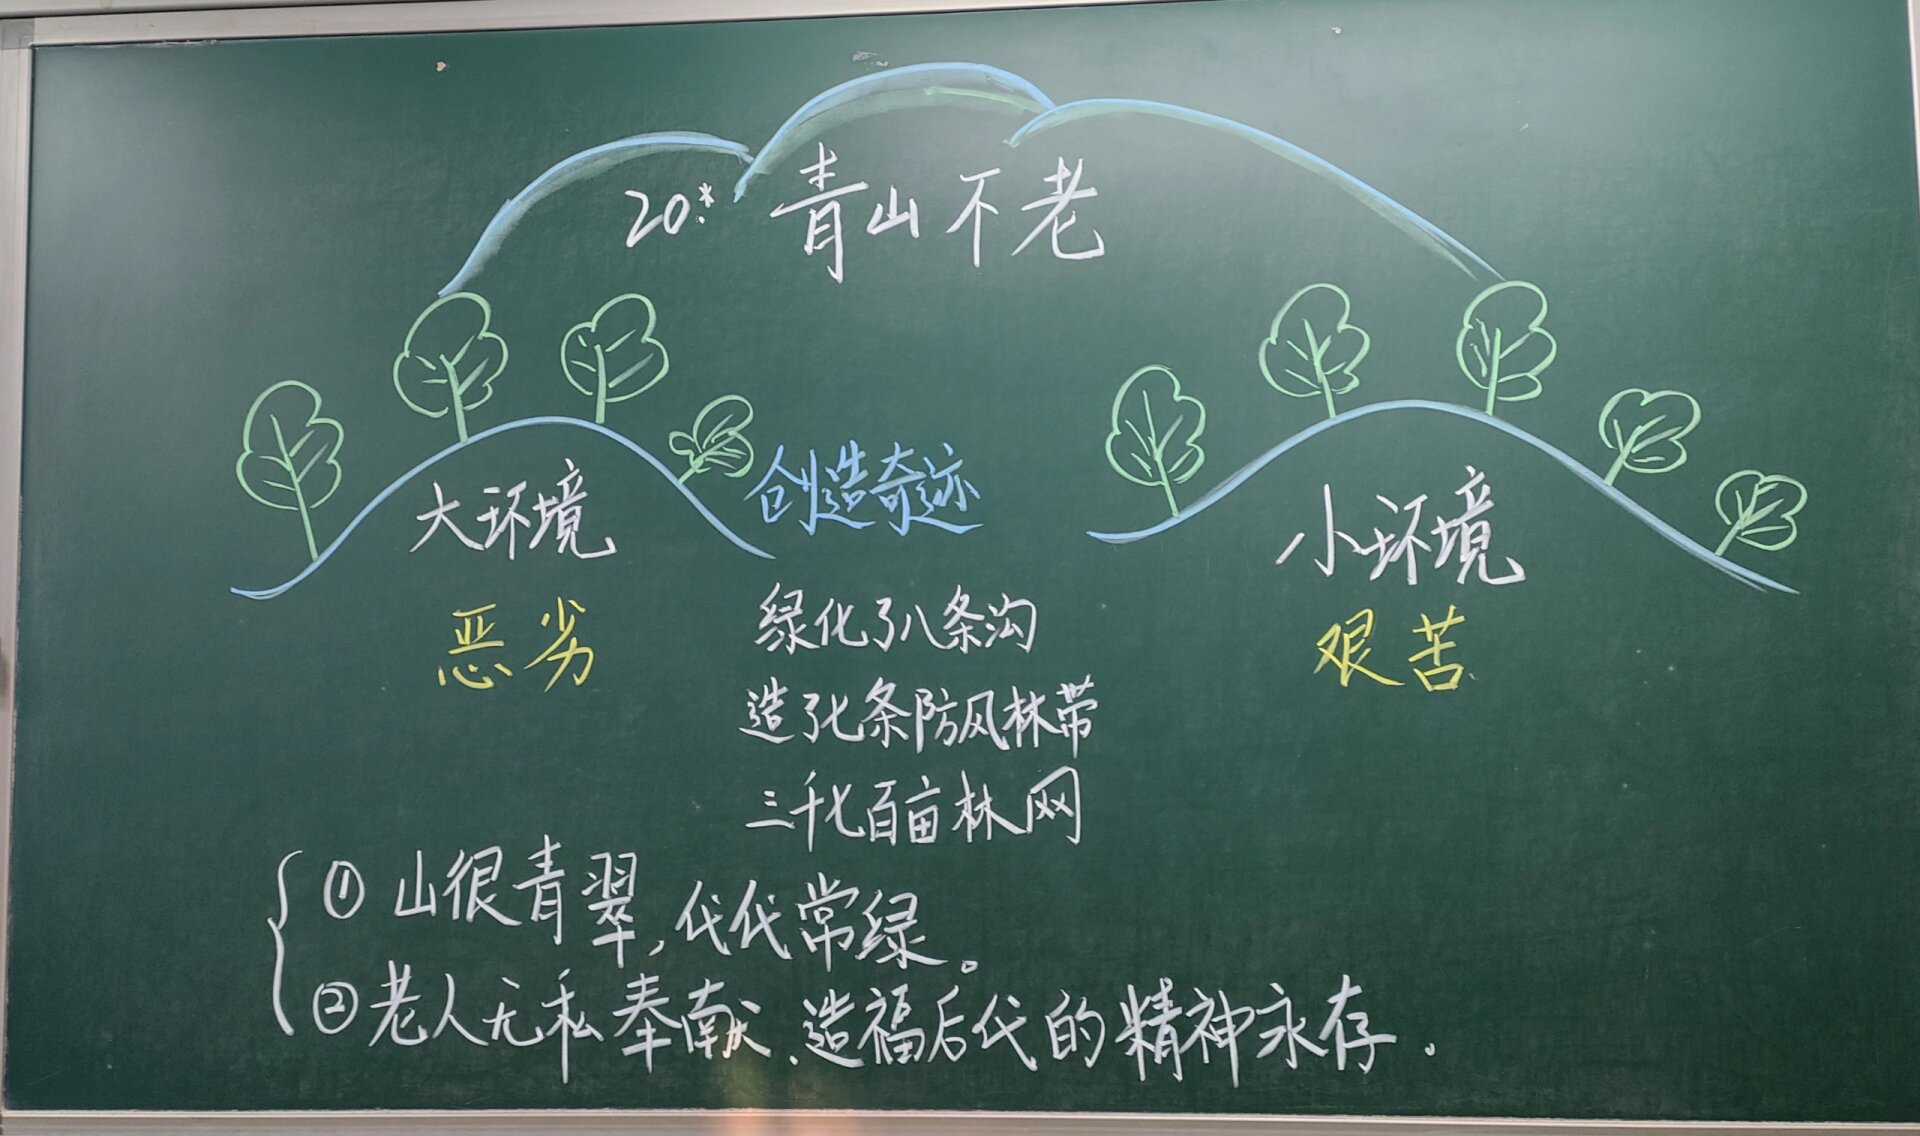 20.* 青山不老
大环境
创造奇迹
小环境
恶劣
绿化了八条沟
艰苦
造了七条防风林带
三千七百亩林网
① 山很青翠,代代常绿。
② 老人无私奉献、造福后代的精神永存.